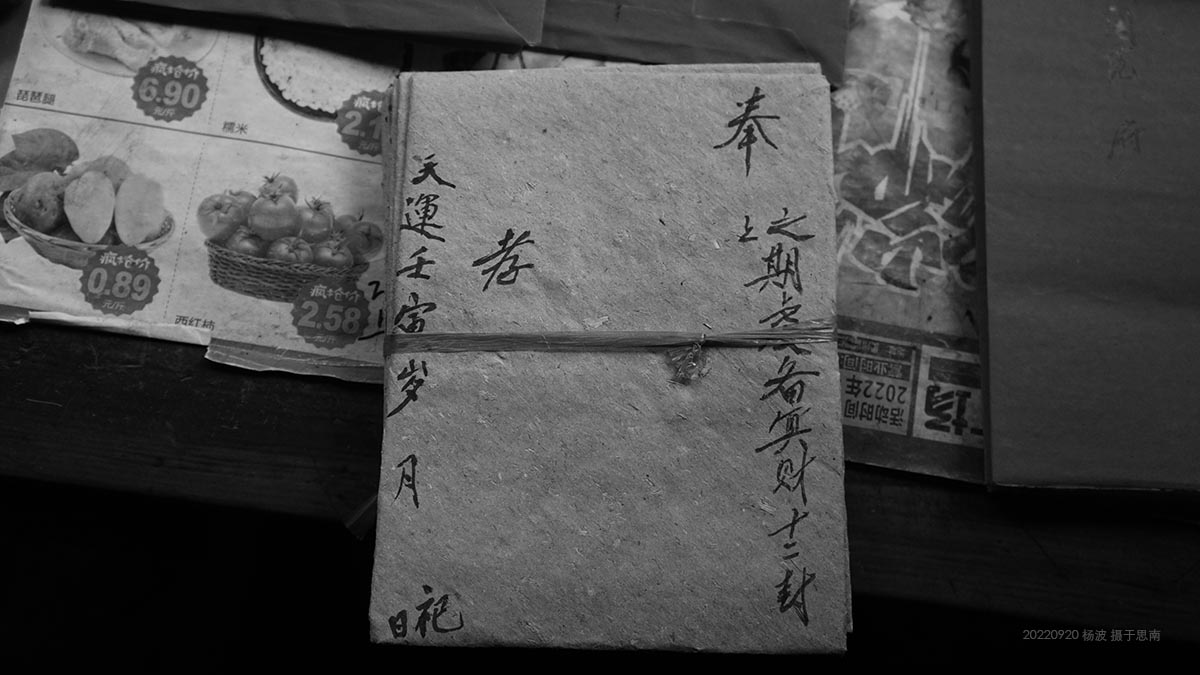 奉
之期虔備冥财十二封
上
孝
天運壬寅岁 月
日祀
疯抢价
6.90
元/斤
琵琶腿
疯抢价
2.1
糯米
疯抢价
0.89
元/斤
疯抢价
2.58
元/斤
西红柿
活动时间
2022年
营业时间
场
府
20220920 杨波 摄于思南